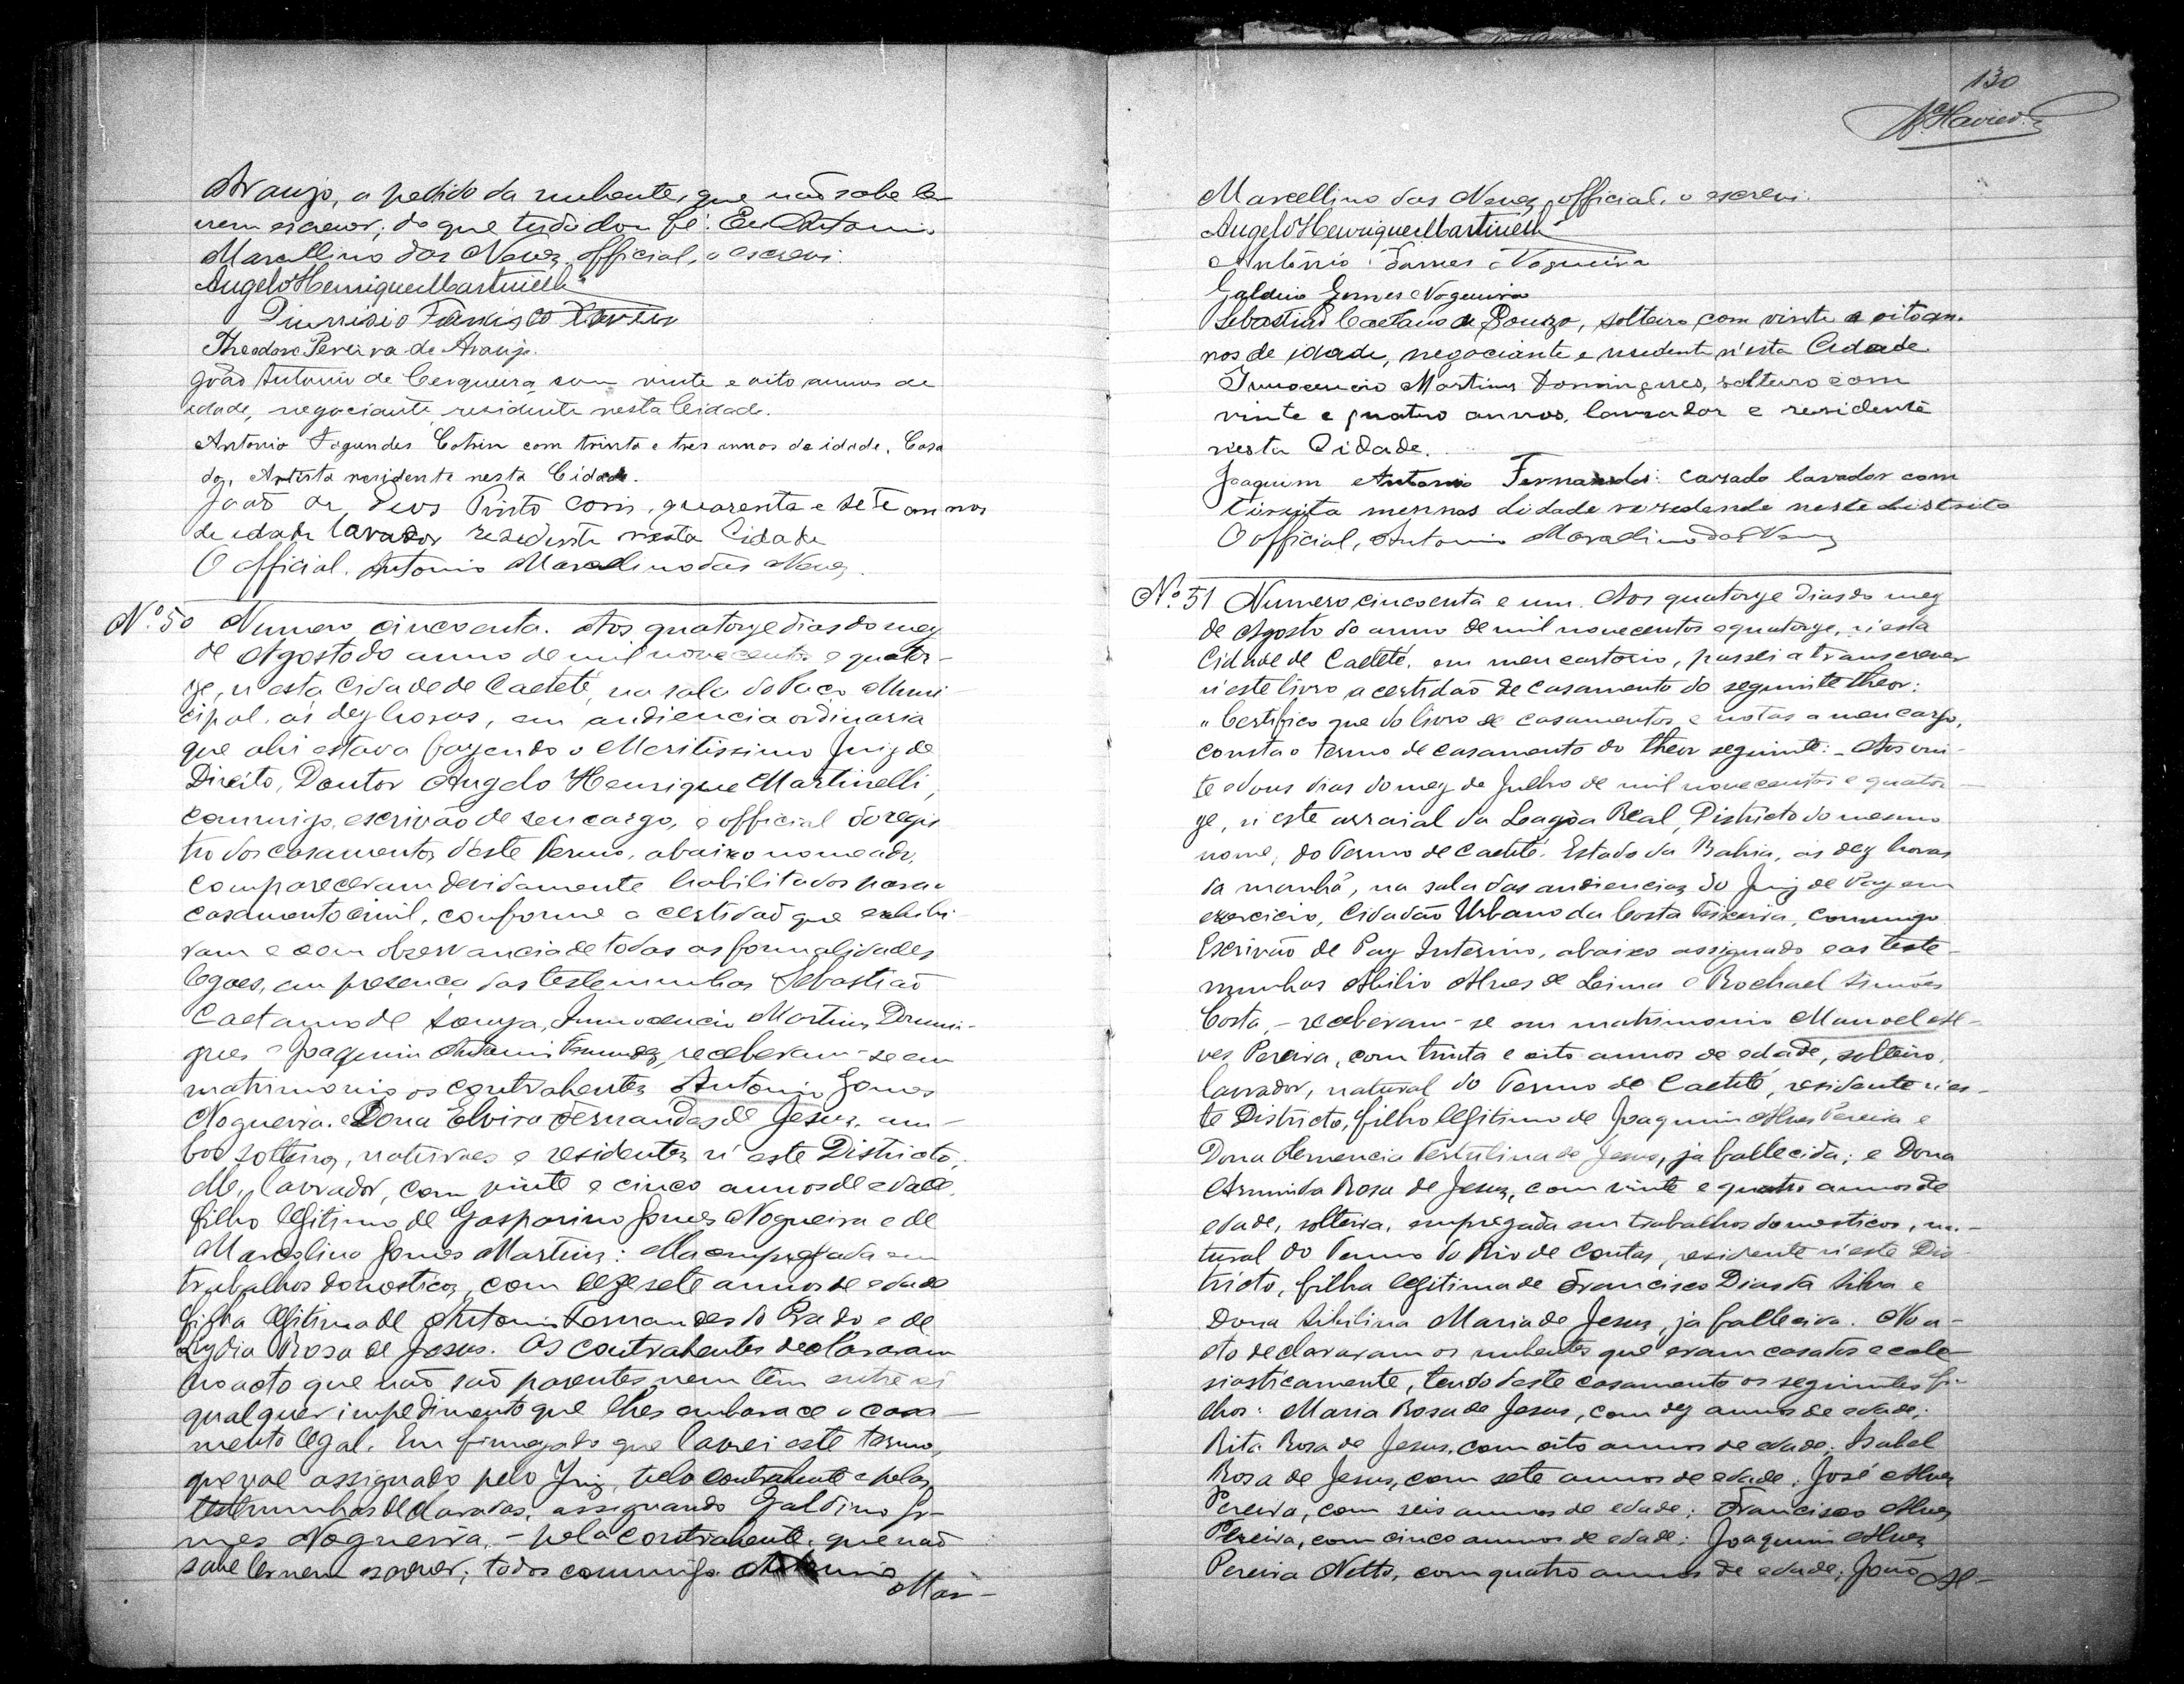 Araujo, a pedido da nubente, que não sabe ler
nem escrever; do que tudo dou fé. Eu Antonio
Marcellino das Neves, official, o escrevi.
Angelo Henrique Martinelli
Francisco Xavier
Theodoro Pereira de Araujo.
João Antonio de Cerqueira com vinte e oito annos de
idade, negociante, residente nesta Cidade.
Antonio Fagundes Cotrin com trinta e tres annos de idade, Casa
do, Artista residente nesta Cidade.
João de Deos Pinto com, quarenta e sete annos
de idade lavrador residente nesta Cidade
O official. Antonio Marcelino das Neves.
Nº 50 Numero cincoenta. Aos quatorze dias do mez
de Agosto do anno de mil novecentos e quator-
ze, n'esta Cidade de Caeteté, na sala do Paço Muni-
cipal, ás dez horas, em audiencia ordinaria
que ahi estava fazendo o Meritissimo Juiz de
Direito, Doutor Angelo Henrique Martinelli,
commigo, escrivão de seu cargo, e official do regis
tro dos casamentos d'este Termo, abaixo nomeado,
compareceram devidamente habilitados para o
casamento civil, conforme a certidão que exhibi
ram e com observancia de todas as formalidades
legaes, em presença das testemunhas Sebastiaõ
Caetano de Souza, Innocencio Martins Domin-
gues e Joaquim Antonio Fernandes, receberam-se em
matrimonio os contrahentes Antonio Gomes
Nogueira e Dona Elvira Fernandes de Jesus, am-
bos solteiros, naturaes e residentes n'este Districto;
elle, lavrador, com vinte e cinco annos de edade,
filho legitimo de Gasparino Gomes Nogueira e de
Marcolina Gomes Martins: ella empregada em
trabalhos domesticos, com dezesete annos de edade
filha legitima de Antonio Fernandes do Prado e de
Lydia Rosa de Jesus. Os contrahentes declararam
no acto que não são parentes nem têm entre si
qualquer impedimento que lhes embarace o casa-
mento legal. Em firmeza do que lavrei este termo,
que vae assignado pelo Juiz, pelo contrahente e pelas
testemunhas declaradas, assignando Galdino Go-
mes Nogueira, - pela contrahente, que não
sabe ler nem escrever; todos commigo Antonio
Mar-
130
Marcellino das Neves, official, o escrevi.
Angelo Henrique Martinelli
Antônio Gomes Nogueira
Galdino Gomes Nogueira
Sebastião Caetano de Souza, solteiro, com vinte e oito an-
nos de idade, negociante e residente n'esta Cidade
Innocencio Martins Domingues, solteiro com
vinte e quatro annos, lavrador e residente
nesta Cidade.
Joaquim Antonio Fernandes: casado lavador com
didade neste districto
O official, Antonio Marcelino das Neves
Nº 51 Numero cincoenta e um. Aos quatorze dias do mez
de Agosto do anno de mil novecentos e quatorze, n'esta
Cidade de Caeteté, em meu cartorio, passei a transcrever
n'este livro a certidão de casamento do seguinte theor:
"Certifico que do livro de casamentos e notas a meu cargo,
consta o termo de casamento do theor seguinte: - Aos vin-
te e dous dias do mez de Julho de mil novecentos e quator-
ze, n'este arraial da Lagôa Real, Districto do mesmo
nome, do Termo de Caeteté, Estado da Bahia, ás dez horas
da manhã, na sala das audiencias do Juiz de Paz em
exercicio, Cidadão Urbano da Costa Teixeira, commigo
Escrivão de Paz Interino, abaixo assignado e as teste-
munhas Abilio Alves de Leima e Rachael Simões
Costa, - receberam-se em matrimonio Manoel Al-
ves Pereira, com trinta e oito annos de edade, solteiro,
lavrador, natural do Termo de Caeteté, residente n'es-
te Districto, filho legitimo de Joaquim Alves Pereira e
Dona Clemencia de Jesus, ja fallecida; e Dona
Arminda Rosa de Jesus, com vinte e quatro annos de
edade, solteira, empregada em trabalhos domesticos, na-
tural do Termo do Rio de Contas, residente n'este Dis
tricto, filha legitima de Francisco Dias da Silva e
Dona Sibilina Maria de Jesus, ja fallecida. No a-
cto declararam os nubentes que eram casados eccle
siasticamente, tendo d'este casamento os seguintes fi-
lhos: Maria Rosa de Jesus, com dez annos de edade;
Rita Rosa de Jesus, com oito annos de edade; Isabel
Rosa de Jesus, com sete annos de edade; José Alves
Pereira, com seis annos de edade; Francisco Alves
Pereira, com cinco annos de edade; Joaquim Alves
Pereira Netto, com quatro annos de edade; João Al-